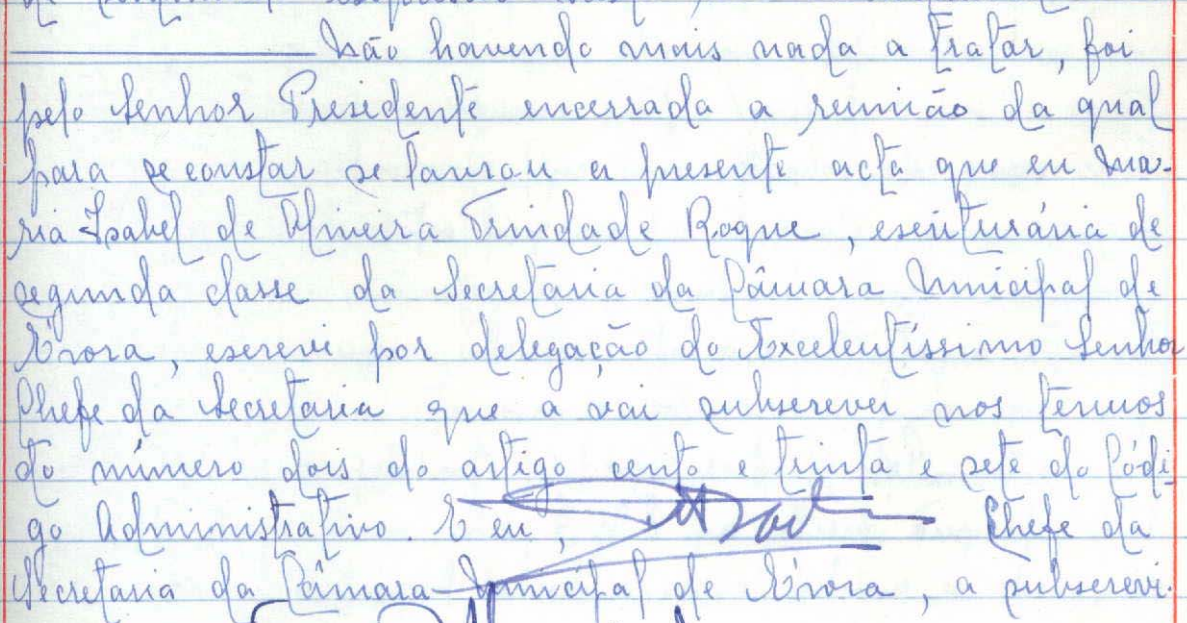 Não havendo mais nada a tratar, foi
pelo Senhor Presidente encerrada a reunião da qual
para se constar se lavrou a presente acta que eu Ma-
ria Isabel de Oliveira Trindade Roque, escriturária de
segunda classe da Secretaria da Câmara Municipal de
Évora, escrevi por delegação do Excelentíssimo Senhor
Chefe da Secretaria que a vai subscrever nos termos
do número dois do artigo cento e trinta e sete do Códi-
go Administrativo. E eu, Chefe da
Secretaria da Câmara Municipal de Évora, a subscrevi.